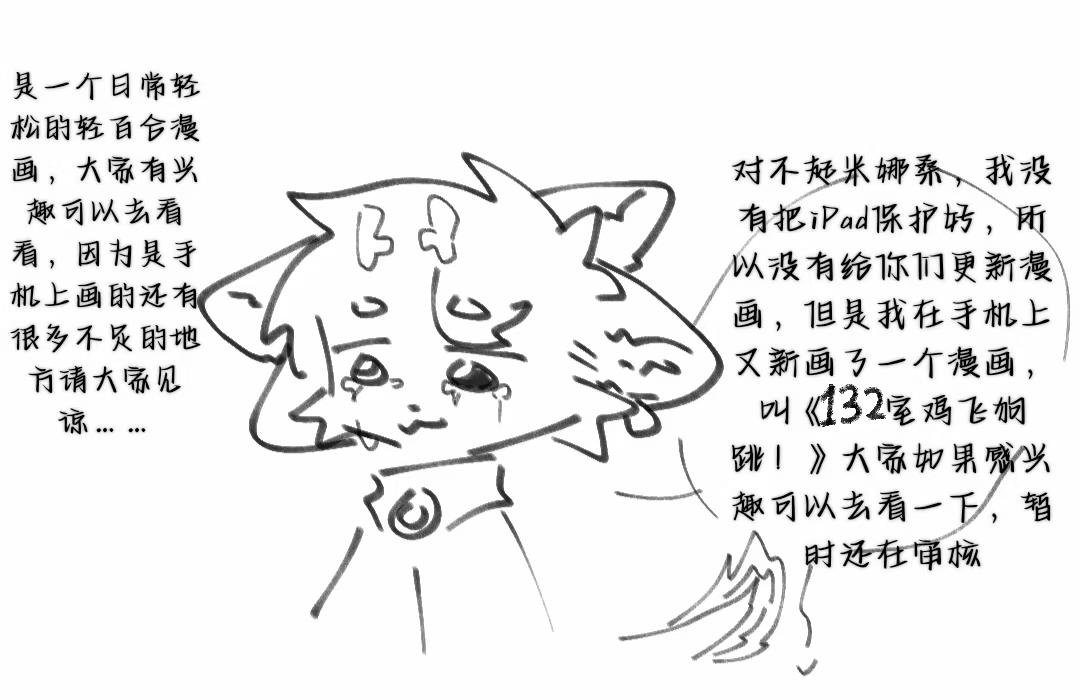 对不起米娜桑，我没
有把iPad保护好，所
以没有给你们更新漫
画，但是我在手机上
又新画了一个漫画，
叫《132室鸡飞狗
跳！》大家如果感兴
趣可以去看一下，暂
时还在审核
是一个日常轻
松的轻百合漫
画，大家有兴
趣可以去看
看，因为是手
机上画的还有
很多不足的地
方请大家见
谅……